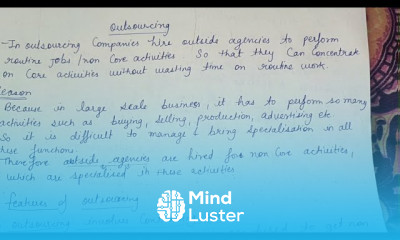 Outsourcing
- In outsourcing Companies hire outside agencies to perform
routine jobs / non Core activities So that they Can Concentrate
on Core activities without wasting time on routine work.
Reason
Because in large scale business, it has to perform so many
activities such as buying, selling, production, advertising etc
So it is difficult to manage & bring specialisation in all
these functions.
Therefore outside agencies are hired for non Core activities,
which are specialised in these activities
features of outsourcing
outsourcing involves
Mind
Luster